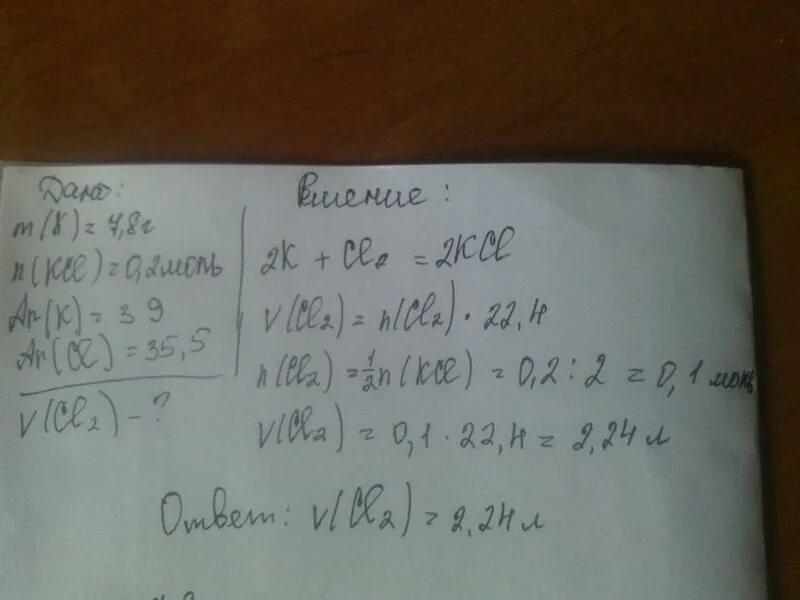 Дано:
m(K) = 7,8г
n(KCl) = 0,2моль
Ar(K) = 39
Ar(Cl) = 35,5
V(Cl₂) - ?
Решение:
2K + Cl₂ = 2KCl
V(Cl₂) = n(Cl₂) · 22,4
n(Cl₂) = ½n(KCl) = 0,2 : 2 = 0,1 моль
V(Cl₂) = 0,1 · 22,4 = 2,24 л
Ответ: V(Cl₂) = 2,24 л